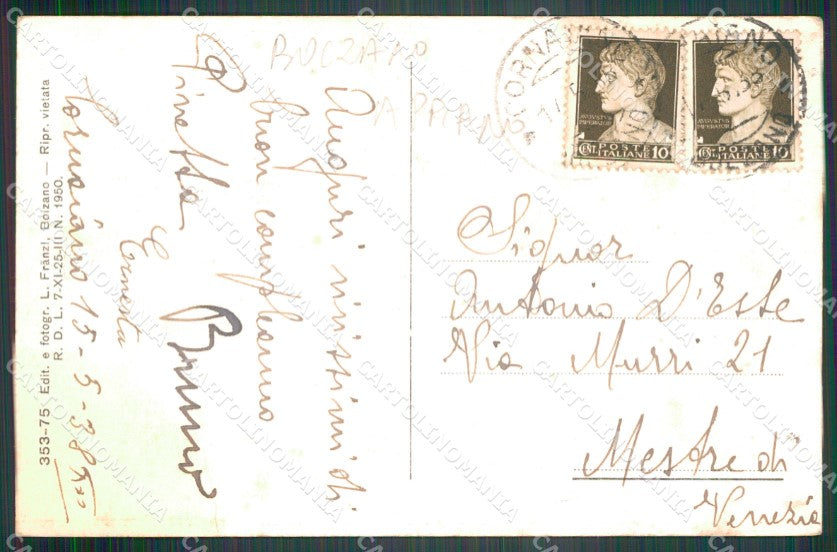 BOLZANO
APPIANO
Auguri vivissimi di
buon compleanno
Pinetta
Ernesta
Bruno
Cornaiano 15-5-38 XVI
353-75 Edit. e fotogr. L. Fränzl, Bolzano — Ripr. vietata
R. D. L. 7-XI-25-III N. 1950.
CORNAIANO
AVGVSTVS
IMPERATOR
CENT. POSTE ITALIANE 10
AVGVSTVS
IMPERATOR
CENT. POSTE ITALIANE 10
Signor
Antonio D'Este
Via Murri 21
Mestre di
Venezia
CARTOLINOMANIA